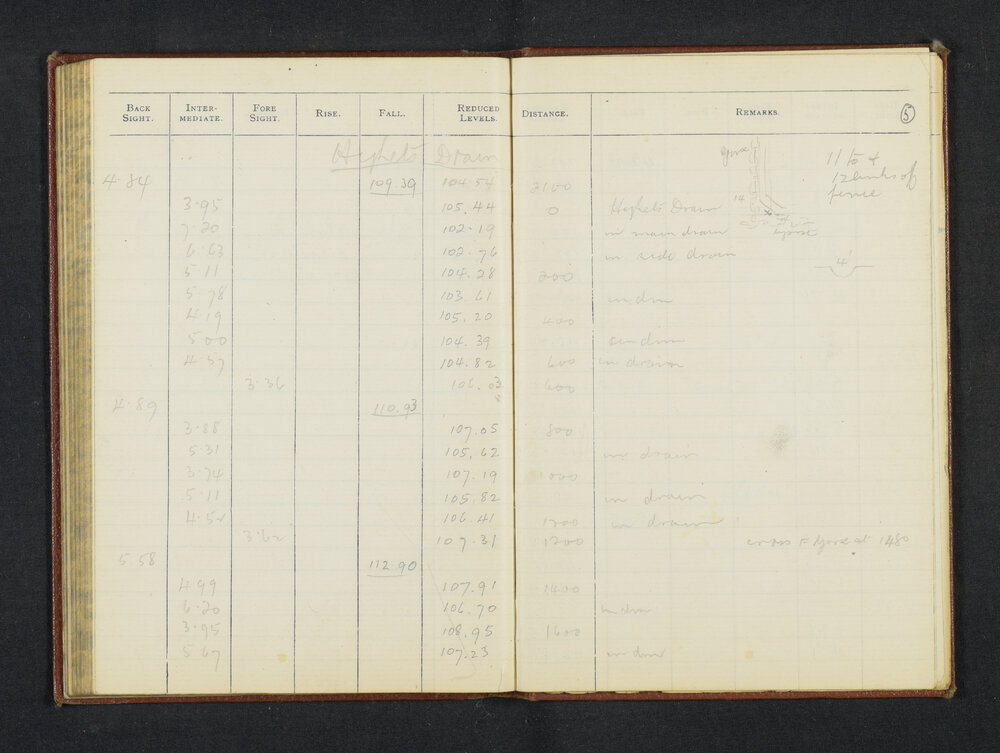 BACK SIGHT. INTER-MEDIATE. FORE SIGHT. RISE. FALL. REDUCED LEVELS. DISTANCE. REMARKS. 5
Drain
4.84 109.39 104.54 2100 11 to 4
12 links of
fence
3.95 105.44 0 Drain 14
7.20 102.19 in main drain
6.63 102.76 in side drain
5.11 104.28 200 4'
5.78 103.61 in drn
4.19 105.20 400
5.00 104.39
4.57 104.82 600 in drain
3.36 106.03 600
4.89 110.93
3.88 107.05 800
5.31 105.62 in drain
3.74 107.19 1000
5.11 105.82 in drain
4.52 106.41 1200 in drain
3.62 107.31 1200 cross at 1480
5.58 112.90
4.99 107.91 1400
6.20 106.70 in drn
3.95 108.95 1600
5.67 107.23 in drn